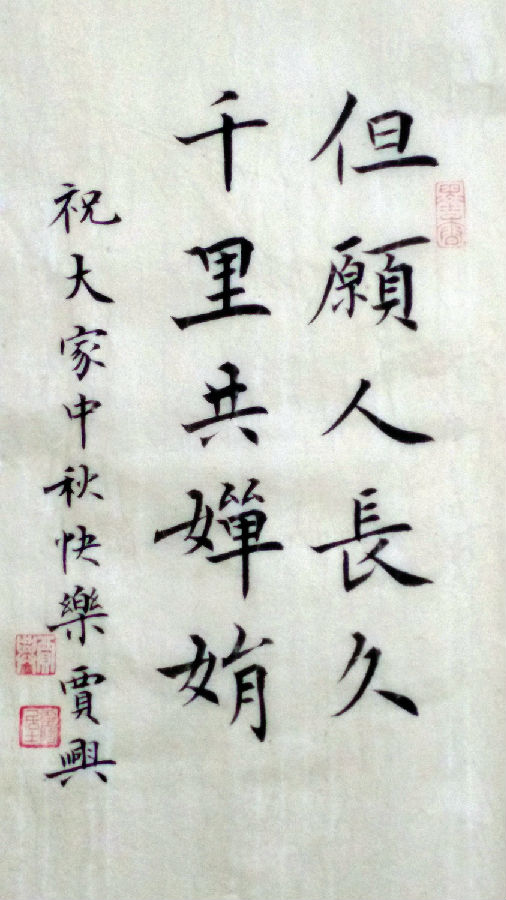 但願人長久
千里共嬋娟
祝大家中秋快樂賈興
墨香